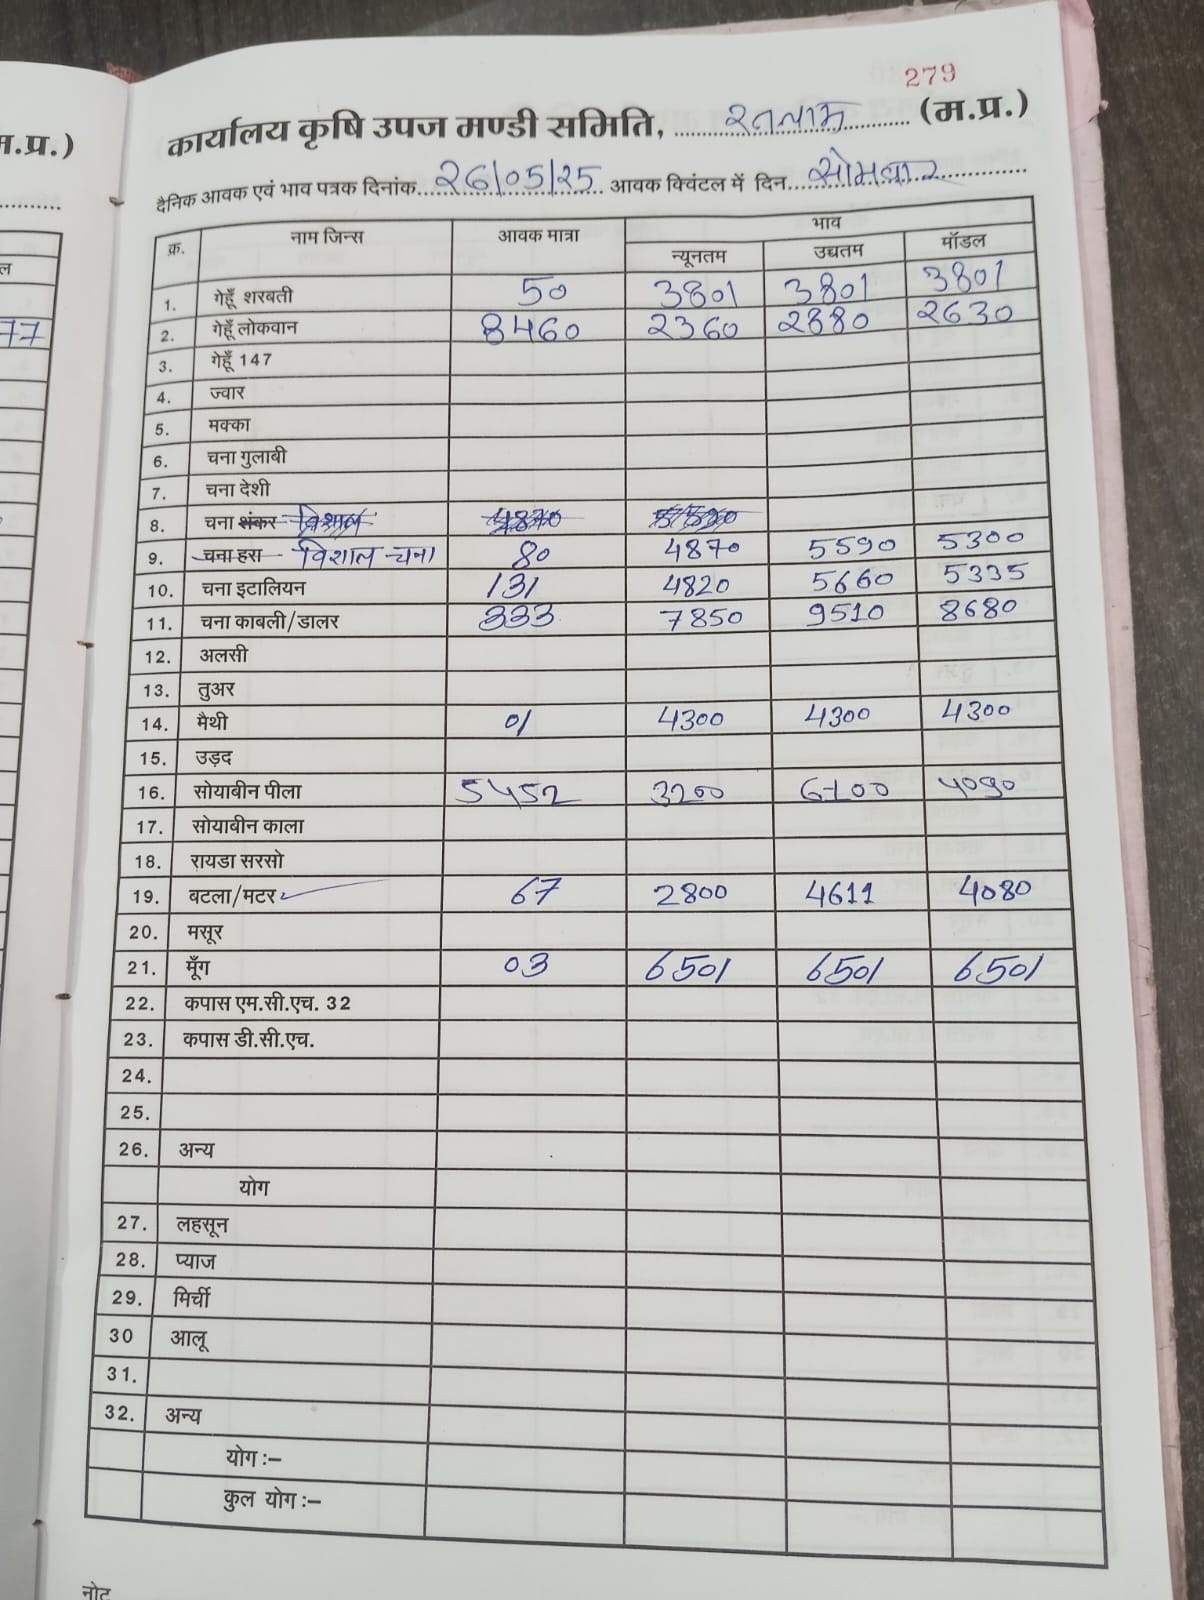 279
कार्यालय कृषि उपज मण्डी समिति, रतलाम (म.प्र.)
म.प्र.)
दैनिक आवक एवं भाव पत्रक दिनांक 26/05/25 आवक क्विंटल में दिन सोमवार
क्र. नाम जिन्स आवक मात्रा भाव
न्यूनतम उच्चतम मॉडल
1. गेहूँ शरबती 50 3801 3801 3801
2. गेहूँ लोकवान 8460 2360 2880 2630
77
3. गेहूँ 147
4. ज्वार
5. मक्का
6. चना गुलाबी
7. चना देशी
8. चना शंकर विशाल 4870
9. चना हरा विशाल चना 80 4870 5590 5300
10. चना इटालियन 131 4820 5660 5335
11. चना काबली/डालर 333 7850 9510 8680
12. अलसी
13. तुअर
14. मैथी 01 4300 4300 4300
15. उड़द
16. सोयाबीन पीला 5452 3200 6100 4090
17. सोयाबीन काला
18. रायडा सरसो
19. बटला/मटर 67 2800 4611 4080
20. मसूर
21. मूँग 03 6501 6501 6501
22. कपास एम.सी.एच. 32
23. कपास डी.सी.एच.
24.
25.
26. अन्य
योग
27. लहसून
28. प्याज
29. मिर्ची
30 आलू
31.
32. अन्य
योग :–
कुल योग :–
नोट